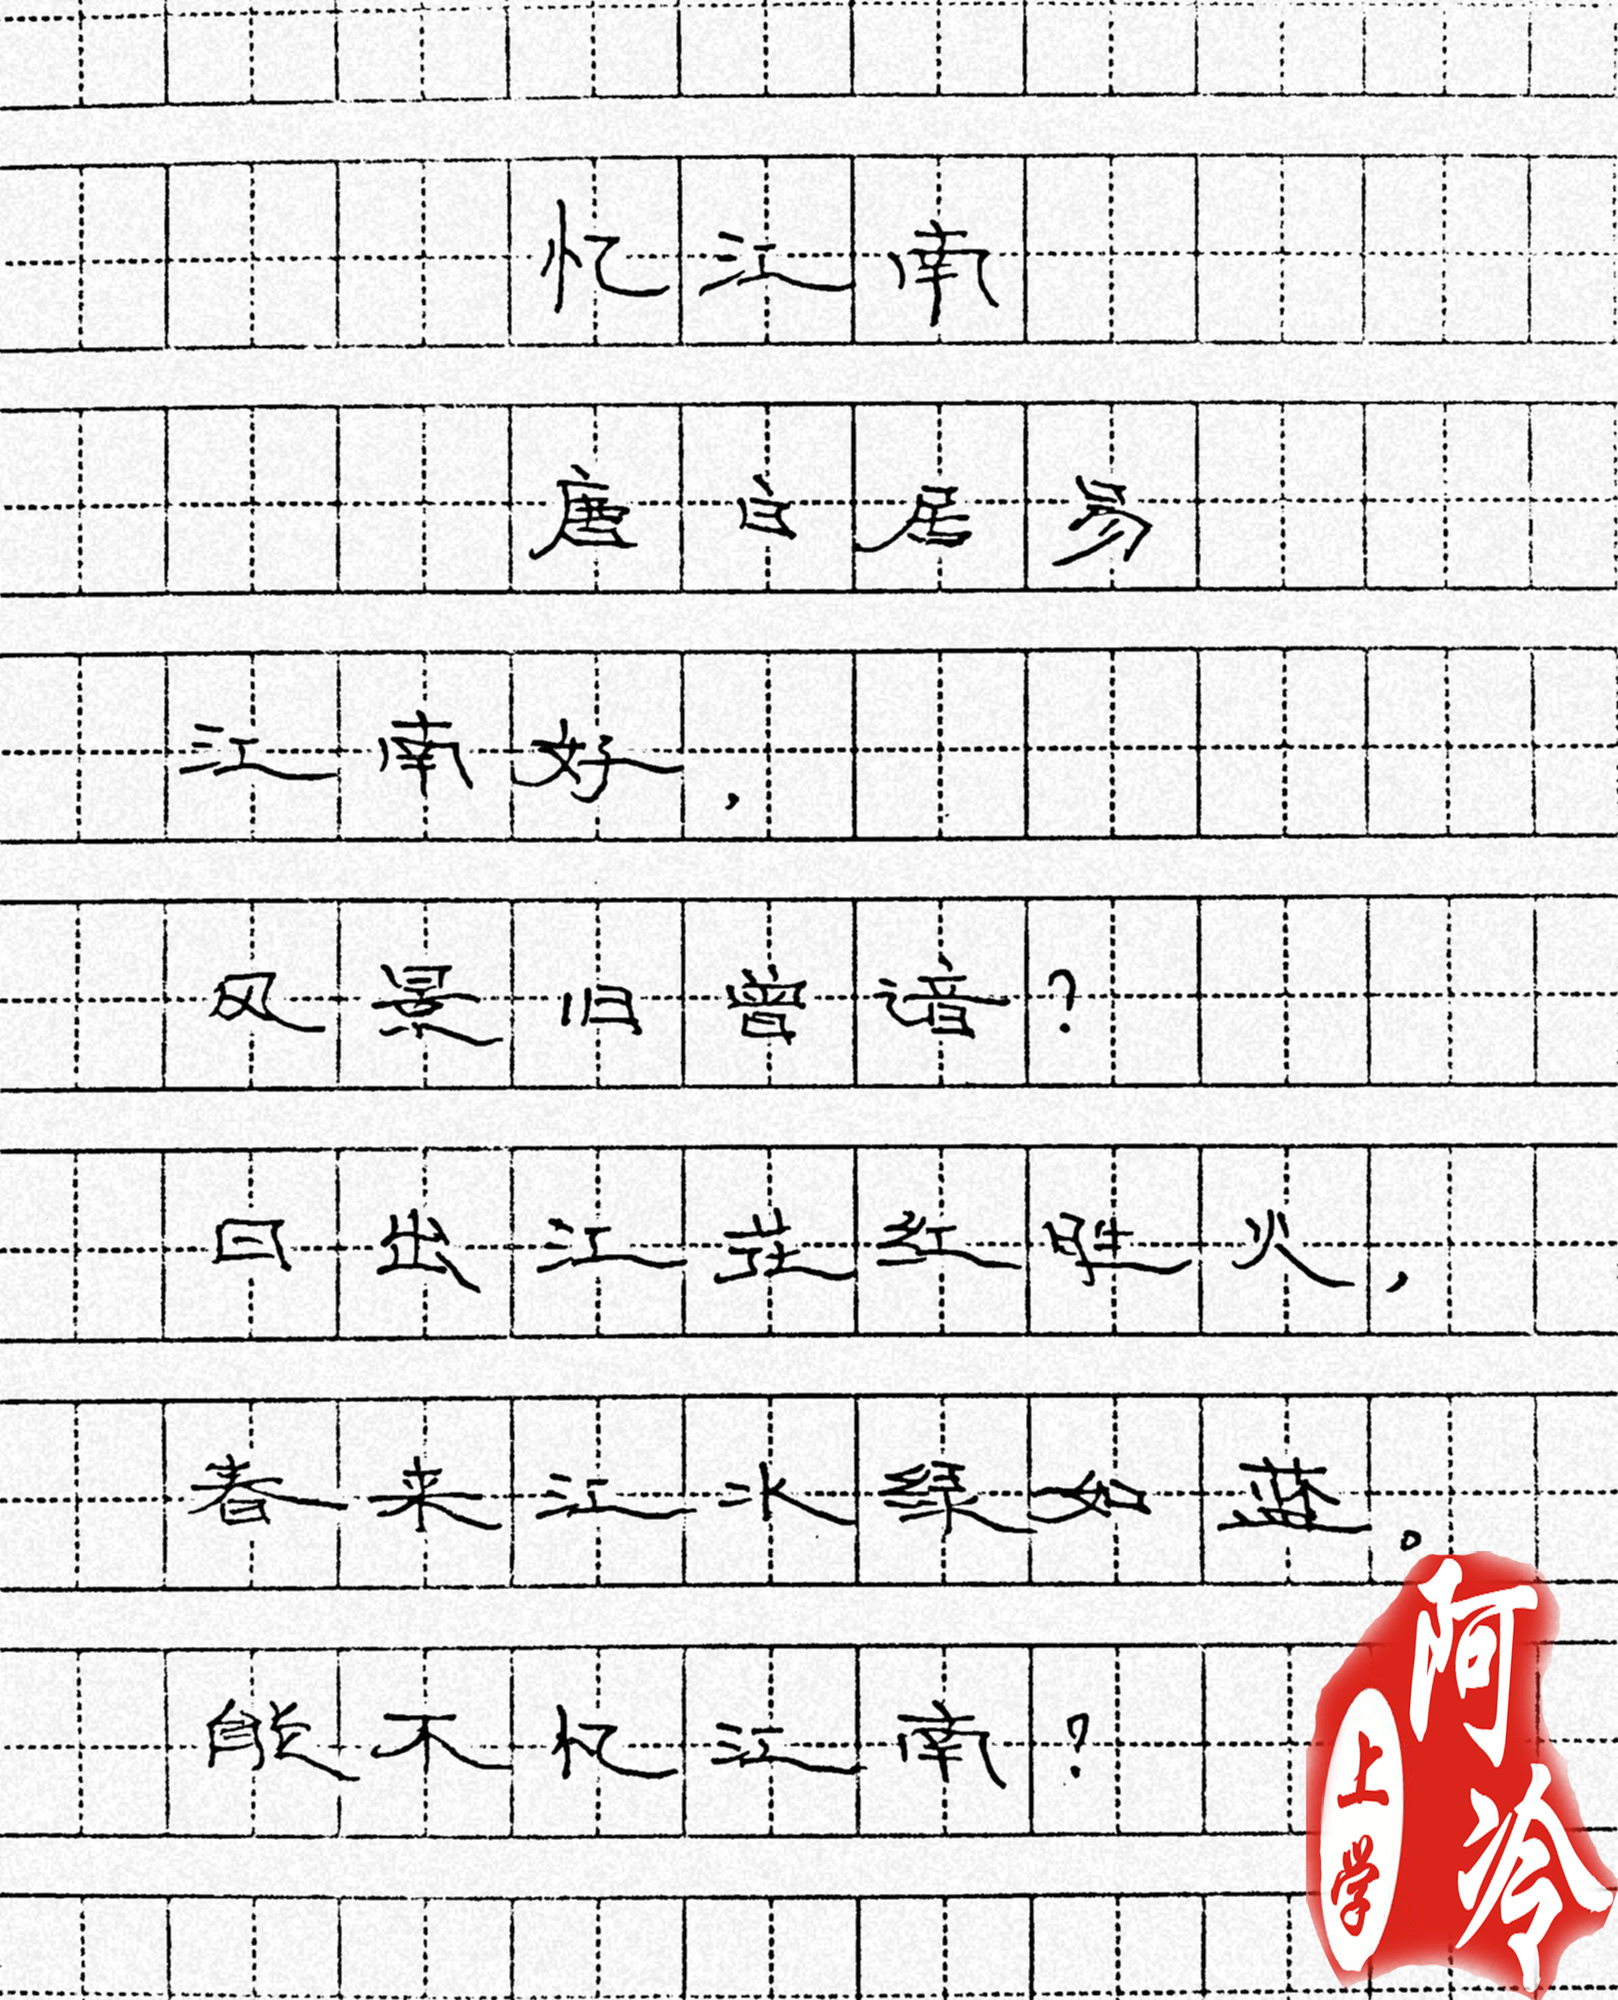 忆江南
唐白居易
江南好，
风景旧曾谙？
日出江花红胜火，
春来江水绿如蓝。
能不忆江南？
阿冷
上学